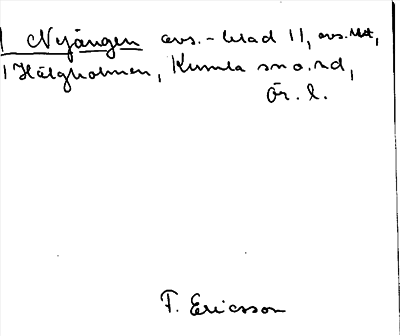 Nyängen avs.-blad 11, avs. litt,
i Hälgholmen, Kumla sn o. hd,
Ör. l.
F. Ericsson